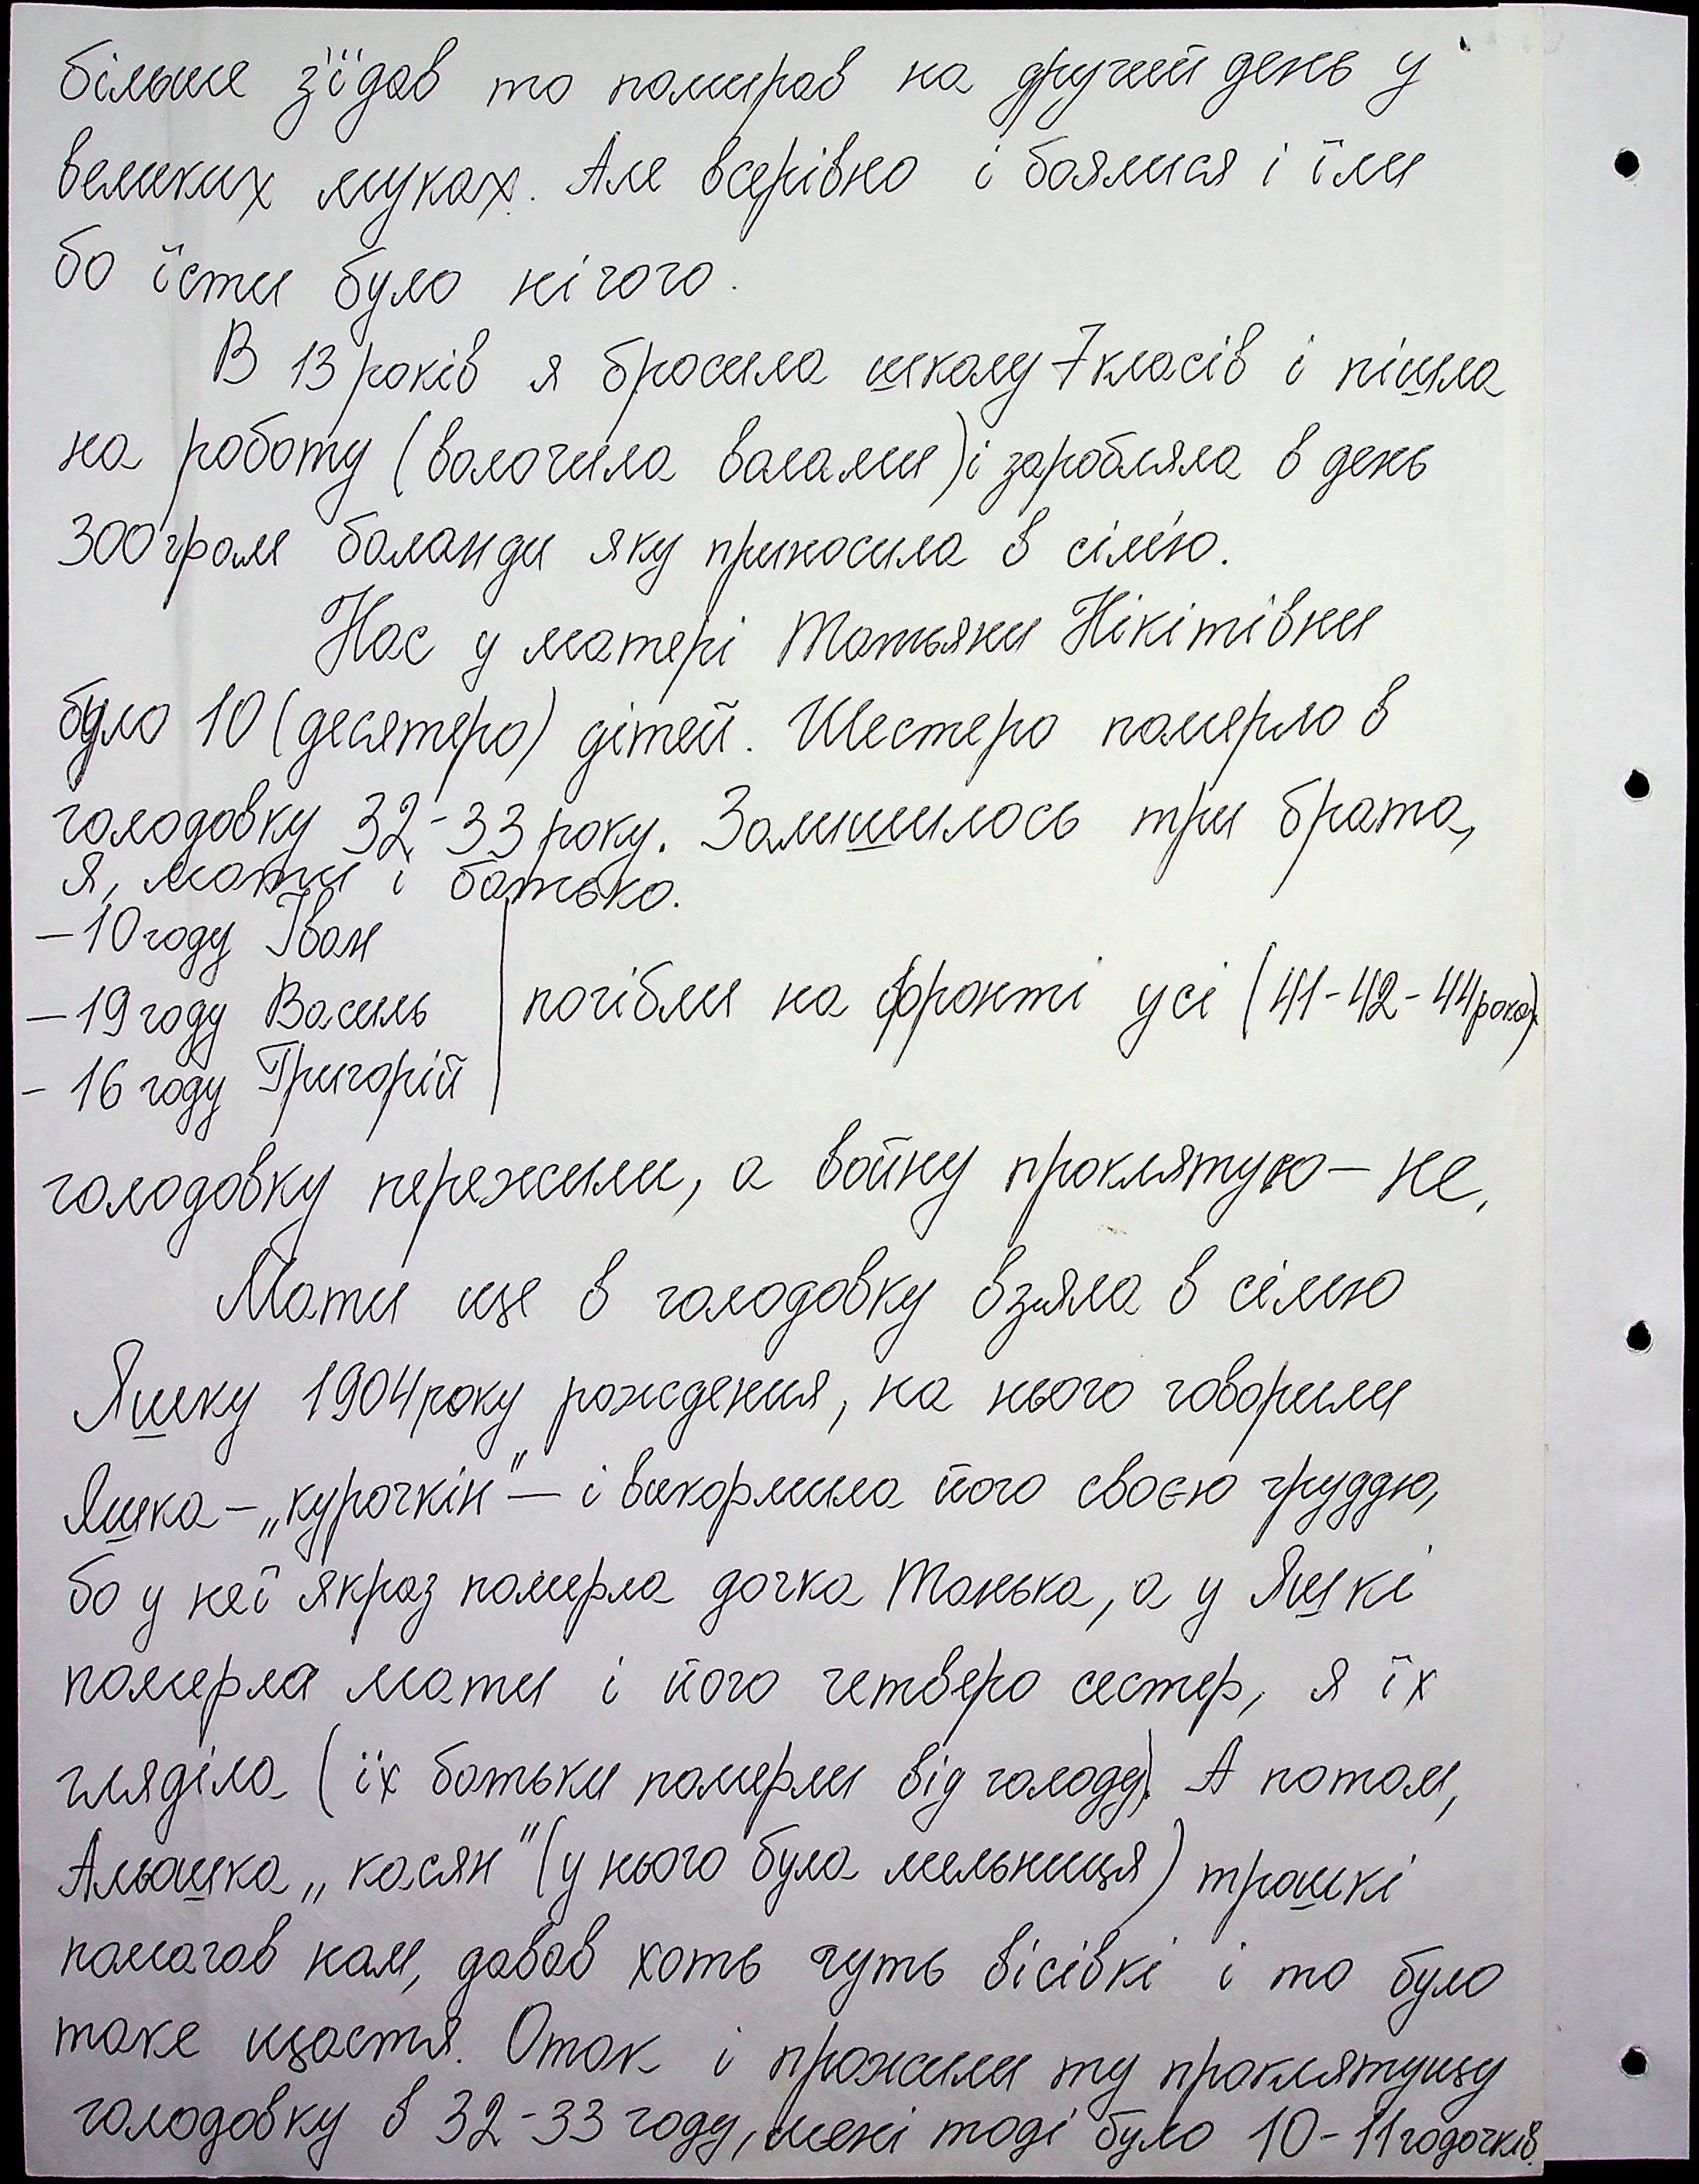 більше з'їдав то помирав на другий день у
великих муках. Але всерівно і боялися і їли
бо їсти було нічого.
В 13 років я бросила школу 7 класів і пішла
на роботу (волочила волами) і заробляла в день
300 грам баланди яку приносила в сім'ю.
Нас у матері Татьяни Нікітівни
було 10 (десятеро) дітей. Шестеро померло в
голодовку 32-33 року. Залишилось три брата,
я, мати і батько.
– 10 году Іван
– 19 году Василь
– 16 году Григорій
погібли на фронті усі (41-42-44 рока).
голодовку пережили, а войну проклятую – не.
Мати ще в голодовку взяла в сімю
Яшку 1904 року рождения, на нього говорили
Яшка – „курочкін" – і викормила його своєю груддю,
бо у неї якраз померла дочка Танька, а у Яшкі
померла мати і його четверо сестер, я їх
гляділа (їх батьки померли від голоду). А потом,
Альошка „касян" (у нього була мельниця) трошкі
помагав нам, давав хоть чуть вісівкі і то було
таке щастя. Отак і прожили ту проклятущу
голодовку в 32-33 году, мені тоді було 10-11 годочків.